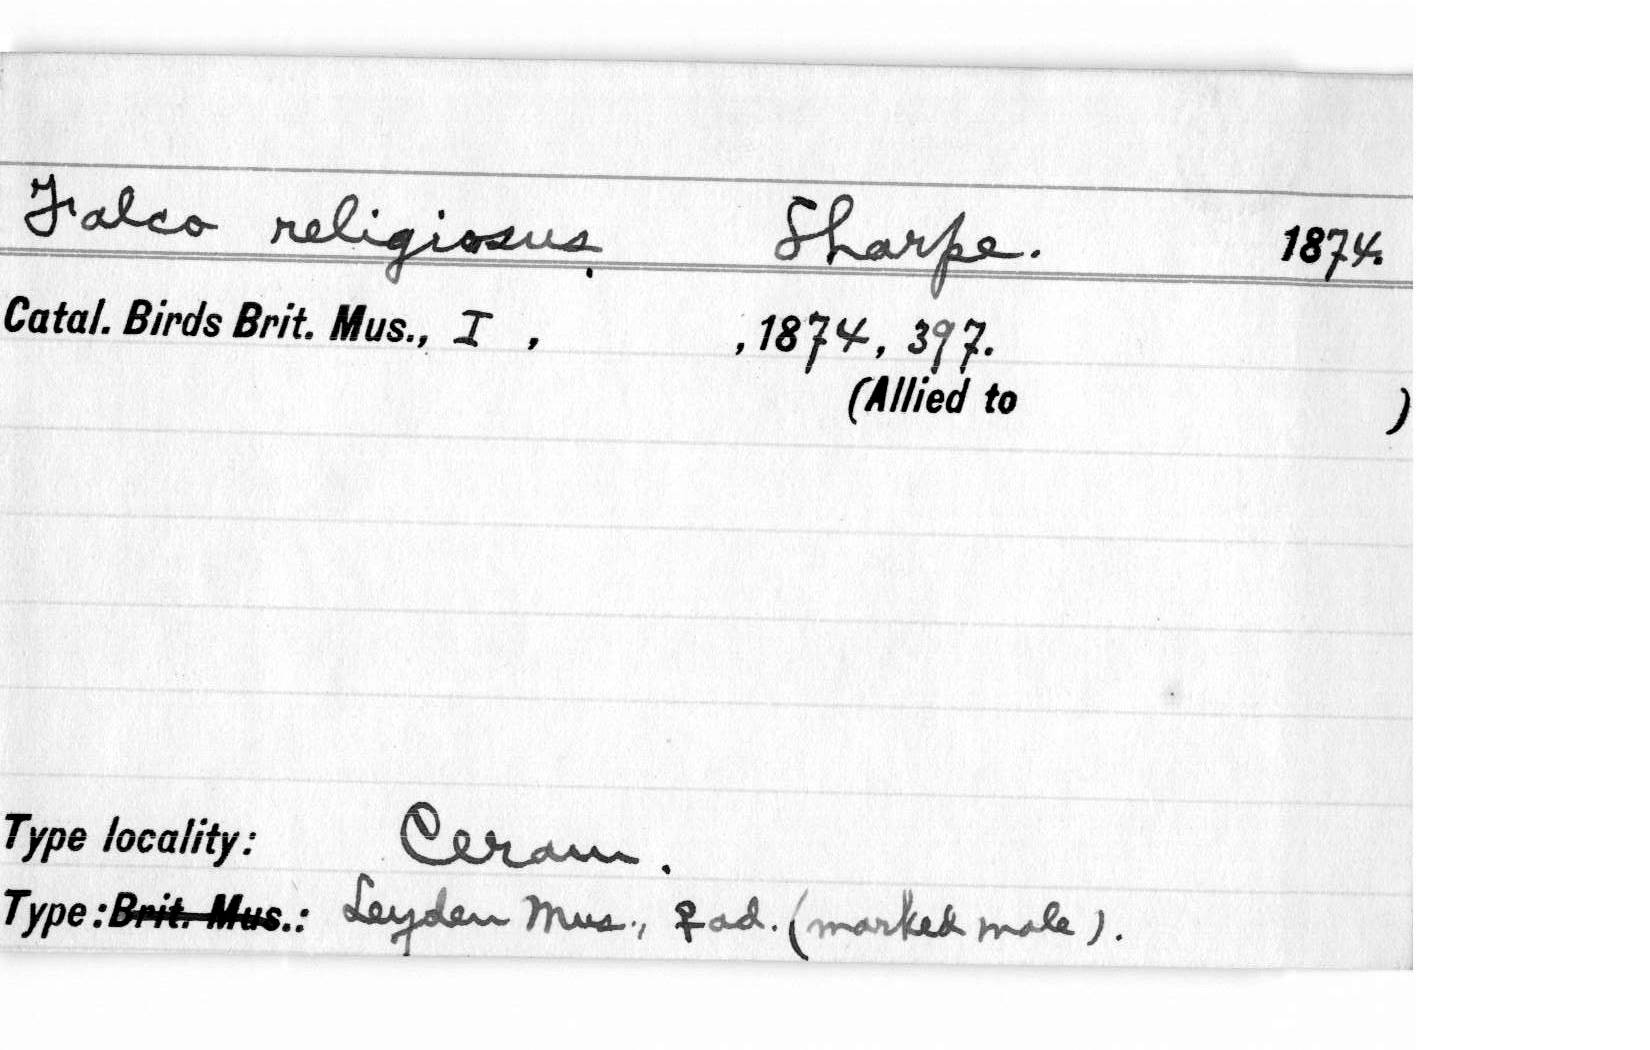 Falco religiosus. Sharpe. 1874.
Catal. Birds Brit. Mus., I , , 1874, 397.
(Allied to )
Type locality: Ceram.
Type: Brit. Mus.: Leyden Mus., ♀ ad. (marked male).